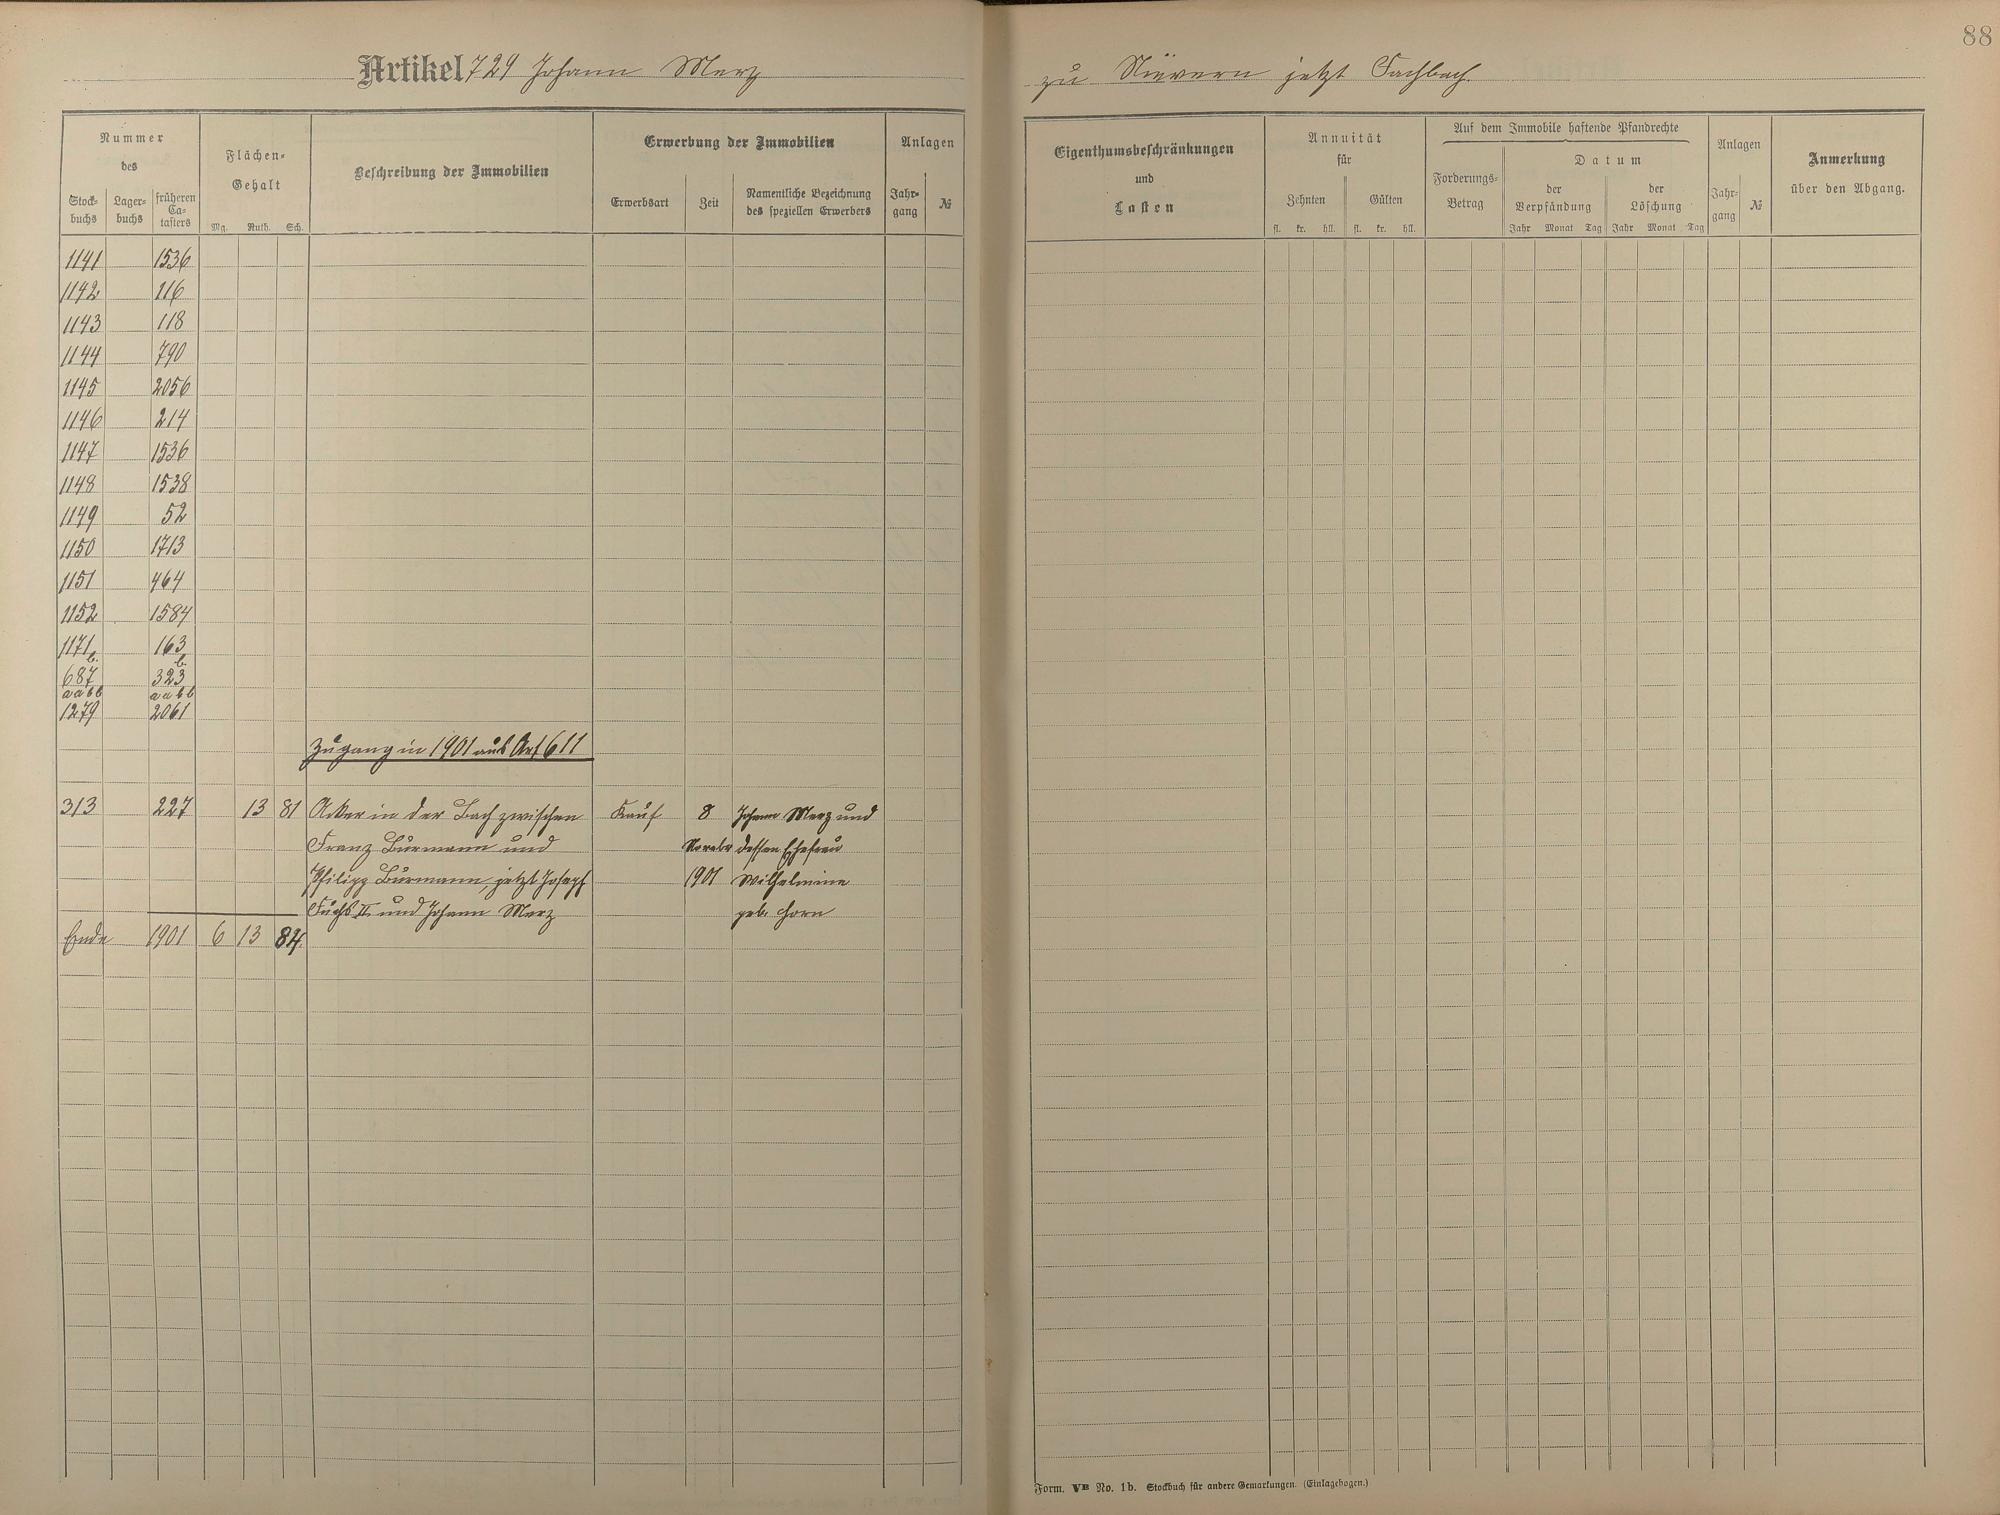 88
Artikel 729 Johann Merz zu Nievern jetzt Fachbach.
Nummer
des
Stock-
buchs
Lager-
buchs
früheren
Ca-
tasters
Flächen-
Gehalt
Mg. Ruth. Sch.
Beschreibung der Immobilien
Erwerbung der Immobilien
Erwerbsart
Zeit
Namentliche Bezeichnung
des speziellen Erwerbers
Anlagen
Jahr-
gang
№
Eigenthumsbeschränkungen
und
Lasten
Annuität
für
Zehnten
fl. kr. hll.
Gülten
fl. kr. hll.
Auf dem Immobile haftende Pfandrechte
Forderungs-
Betrag
Datum
der
Verpfändung
Jahr Monat Tag
der
Löschung
Jahr Monat Tag
Anlagen
Jahr-
gang
№
Anmerkung
über den Abgang.
1141 1536
1142 116
1143 118
1144 790
1145 2056
1146 214
1147 1536
1148 1538
1149 52
1150 1713
1151 464
1152 1584
1171 163
b. b.
687 323
a a b b a a b b
1279 2061
Zugang in 1901 aus Art 611
313 227 13 81 Acker in der Bach zwischen Kauf 8 Johann Merz und
Franz Burmann und Novebr dessen Ehefrau
Philipp Burmann, jetzt Joseph 1901 Wilhelmine
Fuchs II und Johann Merz geb. Horn
Ende 1901 6 13 84.
Form. VB No. 1b. Stockbuch für andere Gemarkungen. (Einlagebogen.)